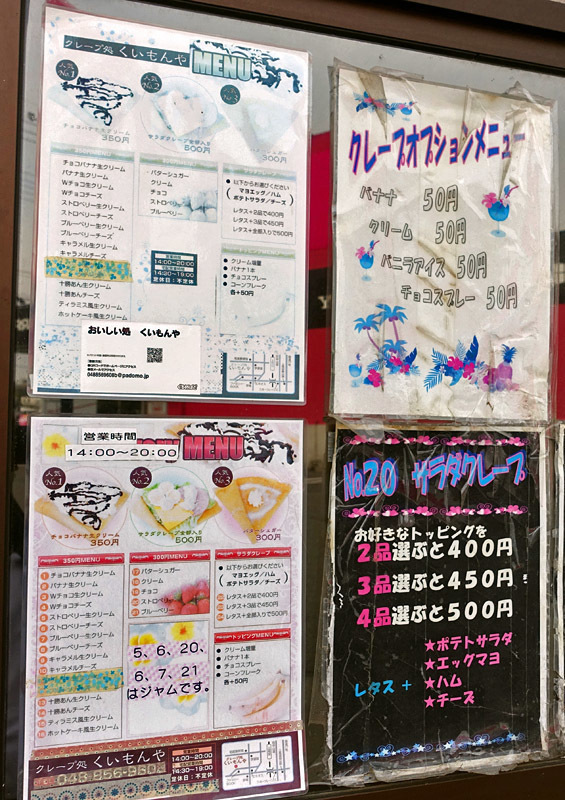 クレープ処 くいもんや MENU
人気 No.1
人気 No.2
人気 No.3
チョコバナナ生クリーム
350円
サラダクレープ全部入り
500円
300円
チョコバナナ生クリーム
バナナ生クリーム
Wチョコ生クリーム
Wチョコチーズ
ストロベリー生クリーム
ストロベリーチーズ
ブルーベリー生クリーム
ブルーベリーチーズ
キャラメル生クリーム
キャラメルチーズ
十勝あん生クリーム
十勝あんチーズ
ティラミス風生クリーム
ホットケーキ風生クリーム
バターシュガー
クリーム
チョコ
ストロベリー
ブルーベリー
14:00〜20:00
14:30〜19:00
定休日:不定休
以下からお選びください
(マヨエッグ/ハム
ポテトサラダ/チーズ)
レタス+2品で400円
レタス+3品で450円
レタス+全部入りで500円
クリーム増量
バナナ1本
チョコスプレー
コーンフレーク
各+50円
おいしい処 くいもんや
クレープオプションメニュー
バナナ 50円
クリーム 50円
バニラアイス 50円
チョコスプレー 50円
営業時間
14:00〜20:00
MENU
人気 No.1
人気 No.2
人気 No.3
チョコバナナ生クリーム
350円
サラダクレープ全部入り
500円
バターシュガー
300円
350円MENU
1 チョコバナナ生クリーム
2 バナナ生クリーム
3 Wチョコ生クリーム
4 Wチョコチーズ
5 ストロベリー生クリーム
6 ストロベリーチーズ
7 ブルーベリー生クリーム
8 ブルーベリーチーズ
9 キャラメル生クリーム
10 キャラメルチーズ
13 十勝あん生クリーム
14 十勝あんチーズ
15 ティラミス風生クリーム
16 ホットケーキ風生クリーム
300円MENU
17 バターシュガー
18 クリーム
19 チョコ
20 ストロベリー
21 ブルーベリー
5、6、20、
6、7、21
はジャムです。
サラダクレープ
以下からお選びください
(マヨエッグ/ハム
ポテトサラダ/チーズ)
22 レタス+2品で400円
23 レタス+3品で450円
24 レタス+全部入りで500円
トッピングMENU
クリーム増量
バナナ1本
チョコスプレー
コーンフレーク
各+50円
クレープ処 くいもんや
14:30〜19:00
定休日:不定休
No.20 サラダクレープ
お好きなトッピングを
2品選ぶと400円
3品選ぶと450円
4品選ぶと500円
レタス +
★ポテトサラダ
★エッグマヨ
★ハム
★チーズ